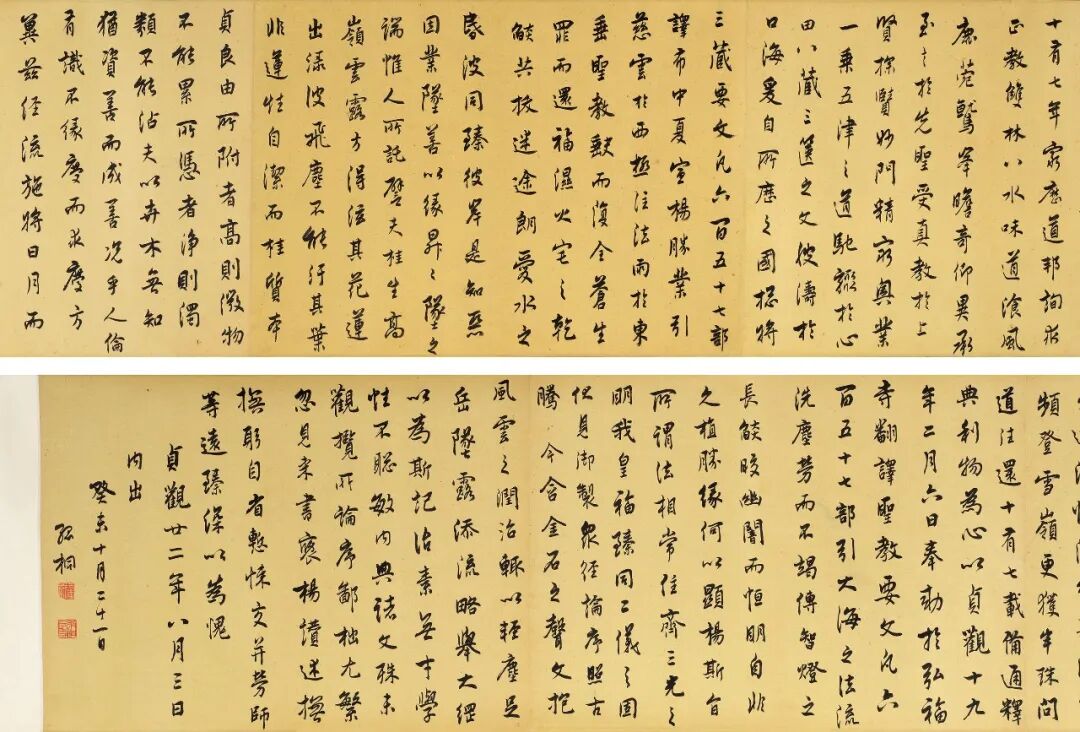 十有七年窮歷道邦詢求
正教雙林八水味道飡風
鹿菀鷲峯瞻奇仰異承
至言於先聖受真教於上
賢探賾妙門精窮奧業
一乘五律之道馳驟於心
田八藏三篋之文波濤於
口海爰自所歷之國摠將
三藏要文凡六百五十七部
譯布中夏宣楊勝業引
慈雲於西極注法雨於東
垂聖教缺而復全蒼生
罪而還福濕火宅之乾
燄共拔迷途朗愛水之
昏波同臻彼岸是知惡
因業墜善以緣昇々墜之
端惟人所託譬夫桂生高
嶺雲露方得泫其花蓮
出淥波飛塵不能汙其葉
非蓮性自潔而桂質本
貞良由所附者高則微物
不能累所憑者淨則濁
類不能沾夫以卉木無知
猶資善而成善況乎人倫
有識不緣慶而求慶方
冀茲經流施將日月而
頻登雪嶺更獲半珠問
道法還十有七載備通釋
典利物為心以貞觀十九
年二月六日奉勅於弘福
寺翻譯聖教要文凡六
百五十七部引大海之法流
洗塵勞而不竭傳智燈之
長燄皎幽闇而恒明自非
久植勝緣何以顯楊斯旨
所謂法相常住齊三光之
明我皇福臻同二儀之固
伏見御製眾經論序照古
騰今含金石之聲文抱
風雲之潤治輒以輕塵足
岳墜露添流略舉大綱
以為斯記治素無才學
性不聰敏內典諸文殊未
觀攬所論序鄙拙尤繁
忽見來書褒楊讚述撫
撫躬自省慙悚交并勞師
等遠臻深以為愧
貞觀廿二年八月三日
內出
癸未十月二十一日
孫桐